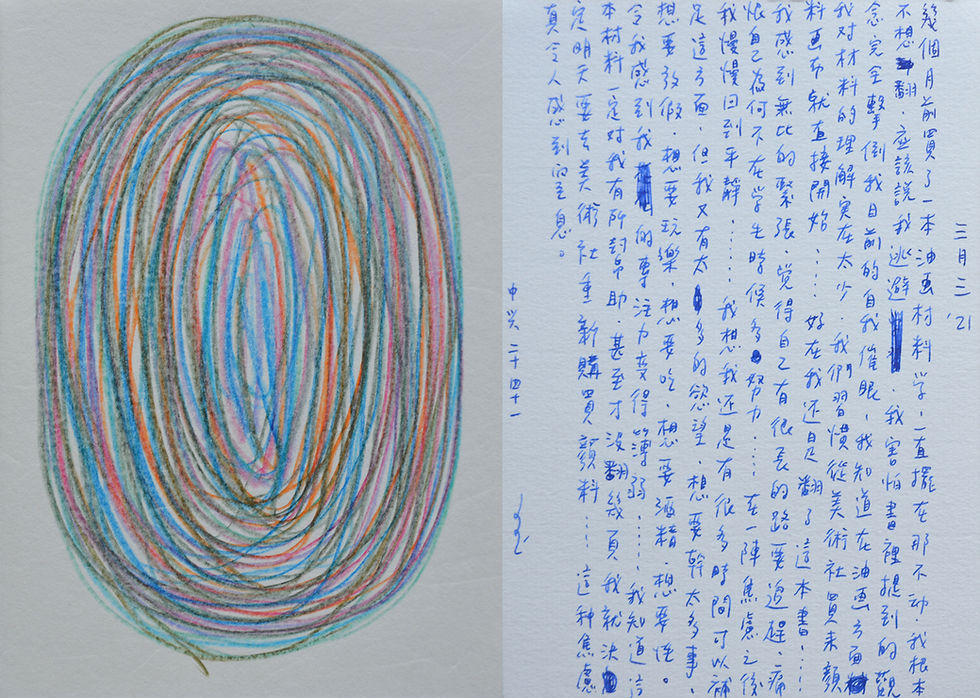 三月三 '21
幾個月前買了一本油画材料学,一直擺在那不动.我根本
不想翻.應該說我逃避.我害怕書裡提到的觀
念完全擊倒我目前的自我催眠,我知道在油画方面
我对材料的理解実在太少.我們習慣從美術社買来顔
料画布就直接開始....好在我还是翻了這本書....
我感到無比的緊張.覚得自己有很長的路要追趕.痛
恨自己為何不在学生時候多努力....在一陣焦慮之後
我慢慢回到平靜.....我想我还是有很多時間可以補
足這方面.但我又有太多的慾望.想要幹太多事.
想要放假.想要玩樂.想要吃.想要酒精.想要性。
令我感到我的專注力变得薄弱.....我知道這
本材料一定对我有所幫助.甚至才没翻幾頁我就決
定明天要去美術社重新購買顔料....這种焦慮
真令人感到窒息。
中兴二十四十一